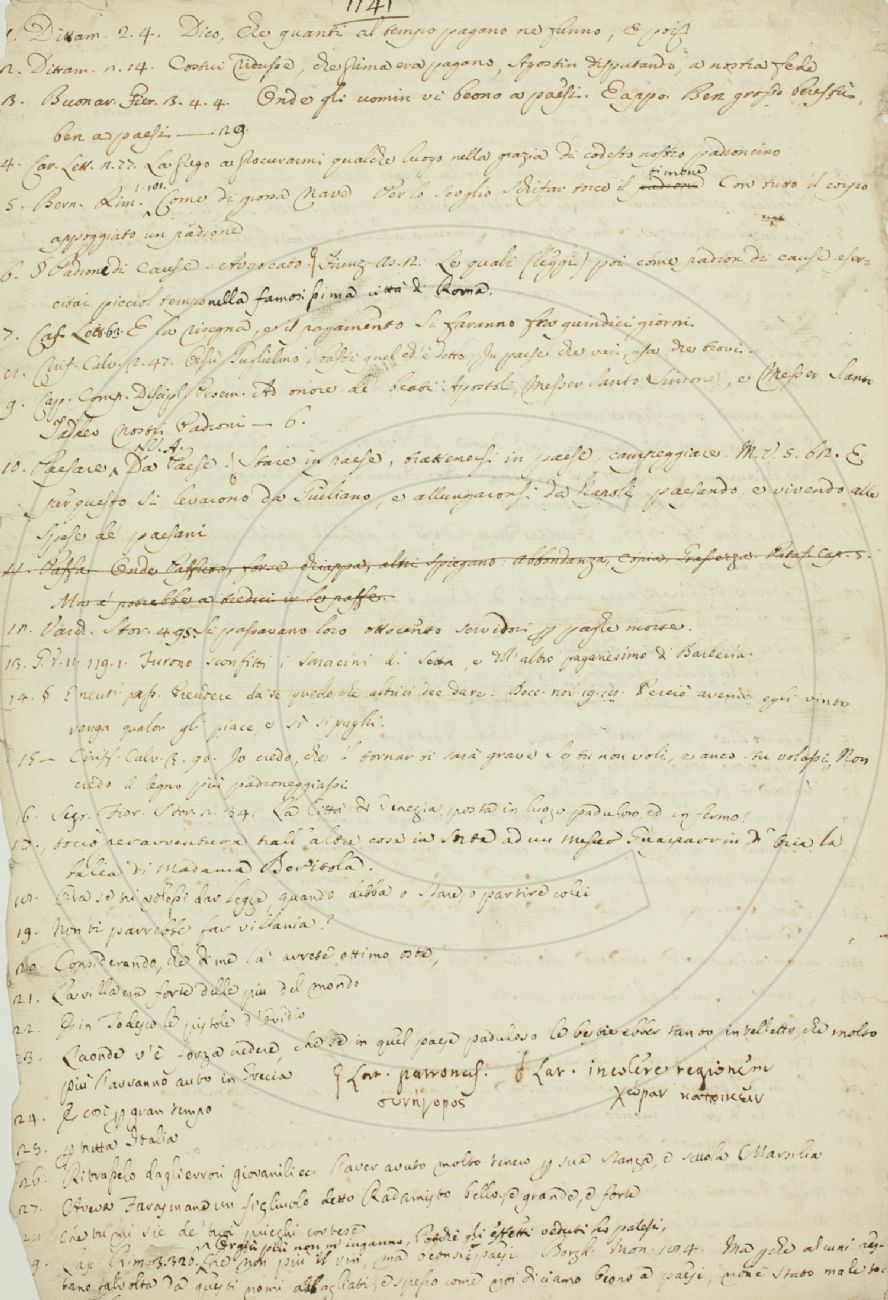 1141
1. Dittam. 2. 4. Dico, che quanti al tempo pagano ne funno, E poi
2. Dittam. 2. 14. Costui ridusse, che prima era pagano, Agostin disputando, a nostra fede
3. Buonar. Fier. 3. 4. 4. Onde gli uomin vi beono a paesi. E appo. Ben grosso
ben a paesi — 29.
4. Car. Lett. 2. 77. La prego a procurarmi qualche luogo nella grazia di codesto nostro padroncino
5. Bern. Rim. 1. 101. Come di grossa nave Per lo scoglio schifar torce il timone Con tutto il corpo
appoggiato un padrone
6. § Padrone di Cause. Avvocato. Le quali (leggi) poi come padron di cause eser-
citai picciol tempo nella famosissima città di Roma.
7. Cas. Lett. 63. E la risegna, e il pagamento si faranno fra quindici giorni.
8. Ciriff. Calv. 2. 47. Guglielmo, quel ch'è detto, In paese che vai, usa che trovi.
9. Cap. Comp. Discipl. Proem. Ad onore de' beati Apostoli, Messer Santo Simone, e Messer Santo
Taddeo nostri Padroni — 6.
10. Paesare Da Paese. Stare in paese, trattenersi in paese, campeggiare. M. V. 5. 62. E
per questo si levarono da Giuliano, e allungaronsi da Napoli paesando, e vivendo alle
spese de' paesani
11. Paffa Onde forse altri spiegano abbondanza, copia, Pataff. Cap. 5.
Ma e' potrebbe a tredici le paffe.
12. Varch. Stor. 4. 95. Si passavano loro ottocento servidori paghe morte.
13. G. V. 11. 119. 1. Furono sconfitti i saracini di Setta, e dell'altro paganesimo di Barberia.
14. § E neutr. pass. Prendere da se quello che altri ci dee dare. Bocc. nov. 19. Perciò avendo egli vinto
venga qualor gli piace, e sì si paghi.
15 — Ciriff. Calv. 3. 90. Io credo, che 'l tornar ti sarà grave Se tu non voli, e anco stu volassi, Non
credo il legno più padroneggiassi
16. Segr. Fior. Stor. 2. 34. La Città di Venezia posta in luogo paduloso, ed infermo.
17. toccò per avventura tra l'altre cose in sorte ad un messer Guasparrin d'Oria la
balia di Madama Beritola.
18. Ora se tu volessi dar legge, quando debba o stare, o partire colei
19. Non ti parrebbe far villania?
20. Considerando, che di me là avrete ottimo oste,
21. La villa era forte delle più del mondo
22. E in Todesco le pistole d'Ovidio
23. Laonde v'è forza vedere, che se in quel paese paduloso le bestie ebber tanto intelletto che molto
più l'avranno avuto in Grecia
§ Lat. patronus. § Lat. incolere regionem
συνήγορος χώραν κατοικεῖν
24. E così gran tempo
25. tutta Italia
26. Ritrasselo dagli errori giovanili ec. Haver avuto molto per sua stanza, e scuola Marsilia
27. Aveva Farasmane un figliuolo detto Radamisto bello, e grande, e forte
28. Che tu mi sie de' tuoi prieghi cortese
Ch'egli più non m'inganno, Perchè gli effetti veduti ho palesi,
29. Che non più il vin, ma paesi. Borgh. Mon. 184. Ma perchè alcuni
talvolta da questi nomi abbagliati, e spesso come noi diciamo beono a paesi, non è stato male